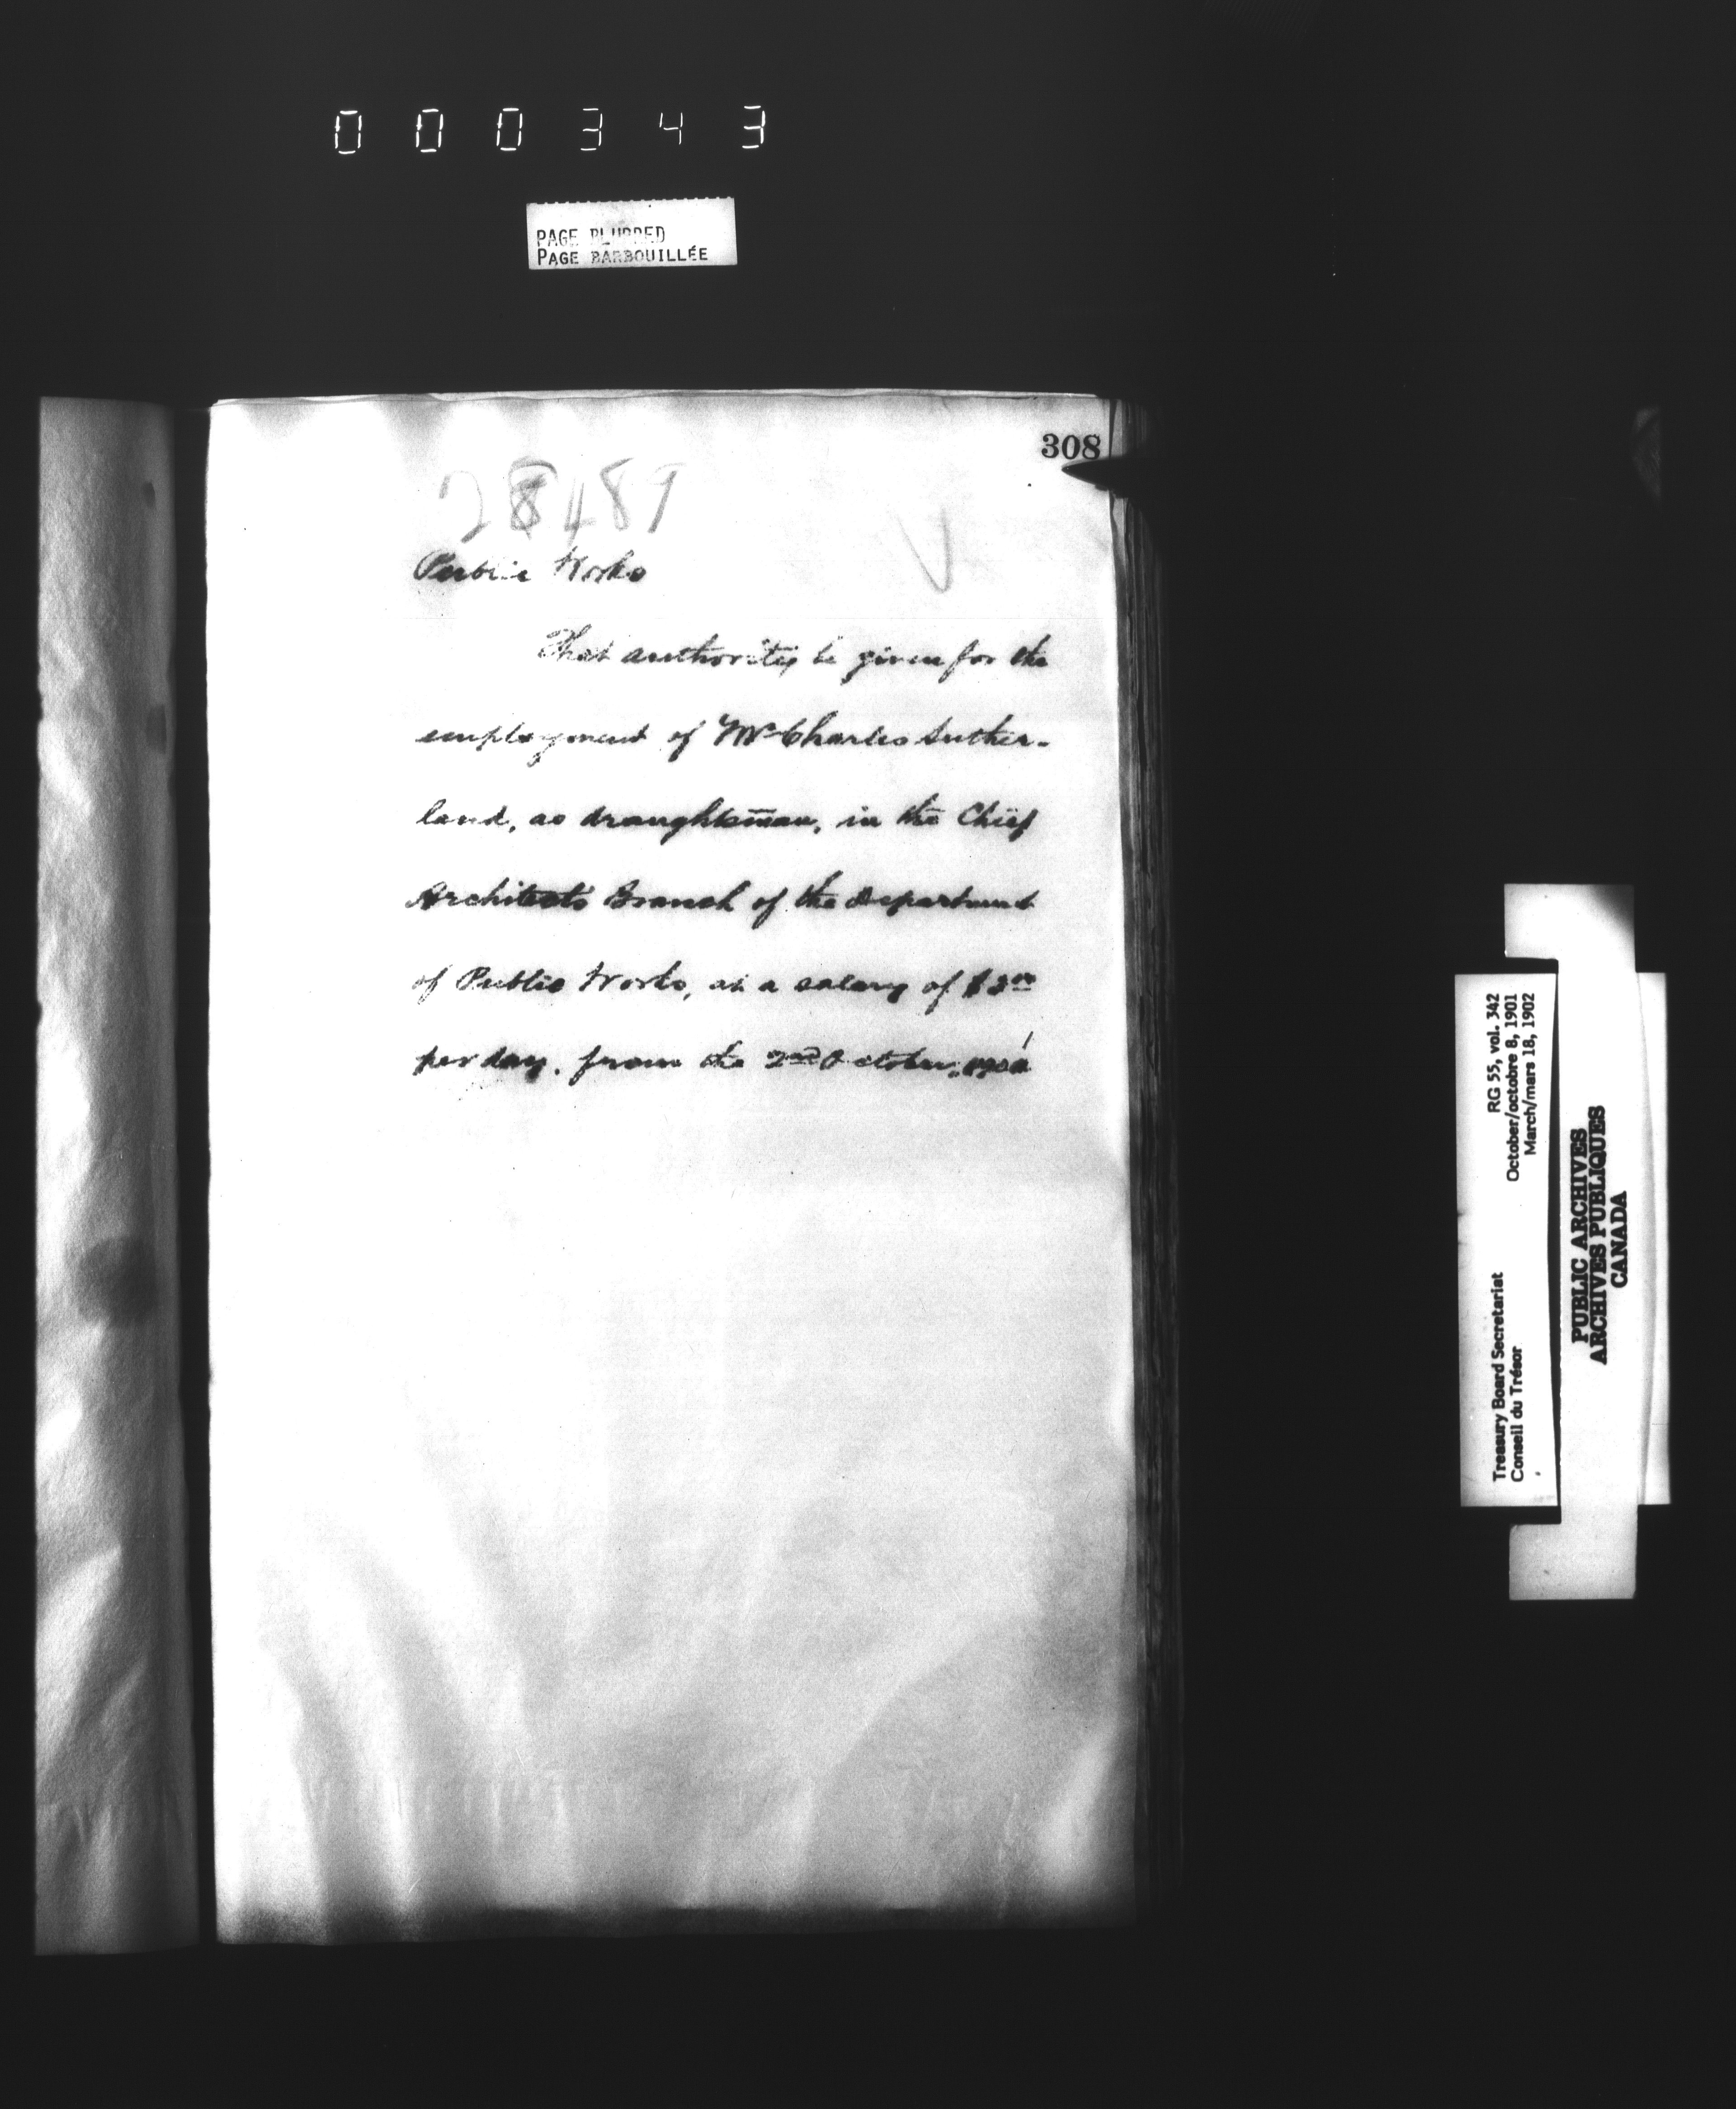 000343
PAGE BLURRED
PAGE BARBOUILLÉE
308
28489
Public Works
That authority be given for the
employment of Mr Charles Suther-
land, as draughtsman, in the Chief
Architects Branch of the Department
of Public Works, at a salary of
per day, from the 2nd October,
RG 55, vol. 342
October/octobre 8, 1901
March/mars 18, 1902
Treasury Board Secretariat
Conseil du Trésor
PUBLIC ARCHIVES
ARCHIVES PUBLIQUES
CANADA